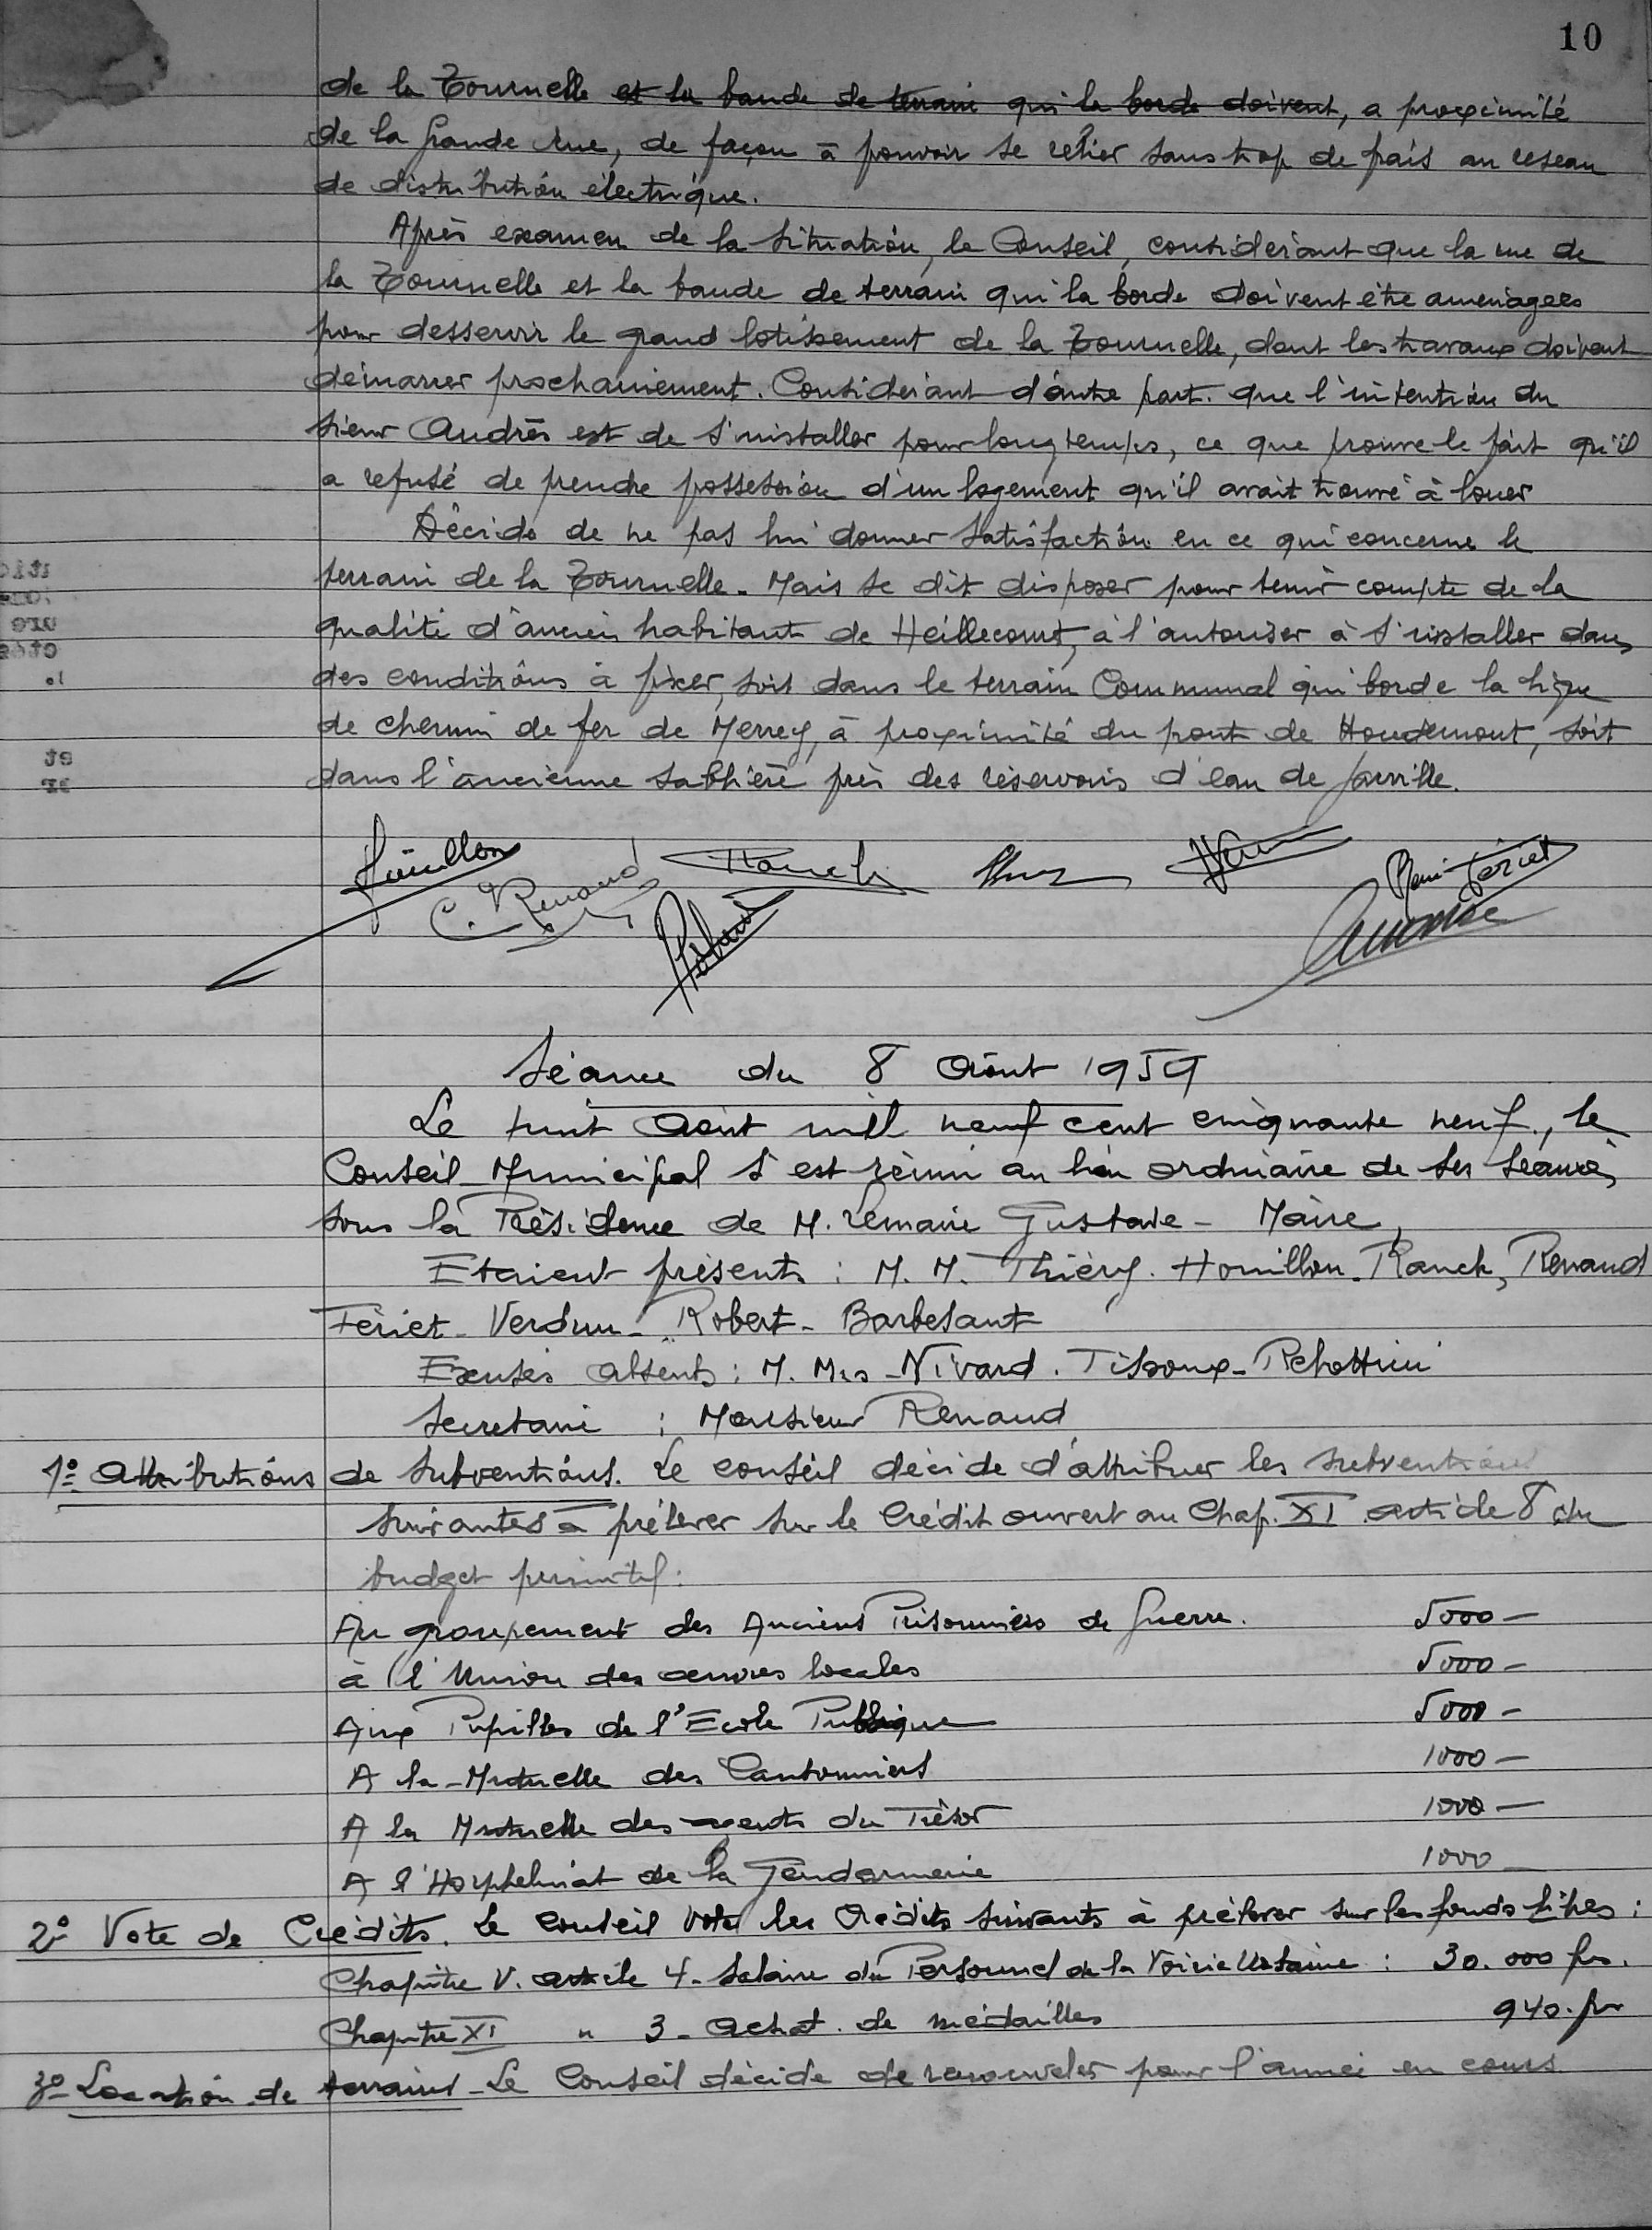 10
de la Tournelle et la bande de terrain qui la borde doivent, a proximité
de la Grande Rue, de façon à pouvoir se relier sans trop de frais au reseau
de distribution électrique.
Après examen de la situation, le Conseil, considerant que la rue de
la Tournelle et la bande de terrain qui la borde doivent être aménagées
pour desservir le grand lotissement de la Tournelle, dont les travaux doivent
démarrer prochainement. Considerant d'autre part. que l'intention du
sieur Andrès est de s'installer pour longtemps, ce que prouve le fait qu'il
a refusé de prendre possession d'un logement qu'il avait trouvé à louer
Décide de ne pas lui donner satisfaction en ce qui concerne le
terrain de la Tournelle - Mais se dit disposer pour tenir compte de la
qualité d'ancien habitant de Heillecourt, à l'autoriser à s'installer dans
des conditions à fixer, soit dans le terrain Communal qui borde la ligne
de chemin de fer de Merrey, à proximité du pont de Houdemont, soit
dans l'ancienne sablière près des réservoirs d'eau de Jarville.
Houillon
C. Renaud
Ranck
Robert
Feriet
Séance du 8 Août 1959
Le huit Août mil neuf cent cinquante neuf, le
Conseil Municipal s'est réuni au lieu ordinaire de ses séances,
sous la Présidence de M. Lemaire Gustave - Maire,
Etaient présents : M.M. Thiéry. Houillon. Ranck, Renaud
Fériet - Verdun - Robert - Barbesant
Excusés absents : M. Mrs - Nivard. Tissoux -
Secretaire : Monsieur Renaud
1º Attributions de subventions. Le conseil décide d'attribuer les subventions
suivantes à prélever sur le Crédit ouvert au Chap. XI article 8 du
budget primitif :
Au groupement des Anciens Prisonniers de Guerre. 5000 -
à l'Union des œuvres locales 5000 -
Aux Pupilles de l'Ecole Publique 5000 -
A la Mutuelle des Cantonniers 1000 -
A la Mutuelle des agents du Trésor 1000 -
A l'Horphelinat de la Gendarmerie 1000
2º Vote de Crédits. Le Conseil vote les Crédits suivants à prélever sur les fonds libres :
Chapitre V. article 4 - Salaire du Personnel de la Voirie Urbaine : 30.000 frs.
Chapitre XI " 3 - Achat de médailles 940. fr
3º Location de terrains - Le Conseil décide de renouveler pour l'année en cours